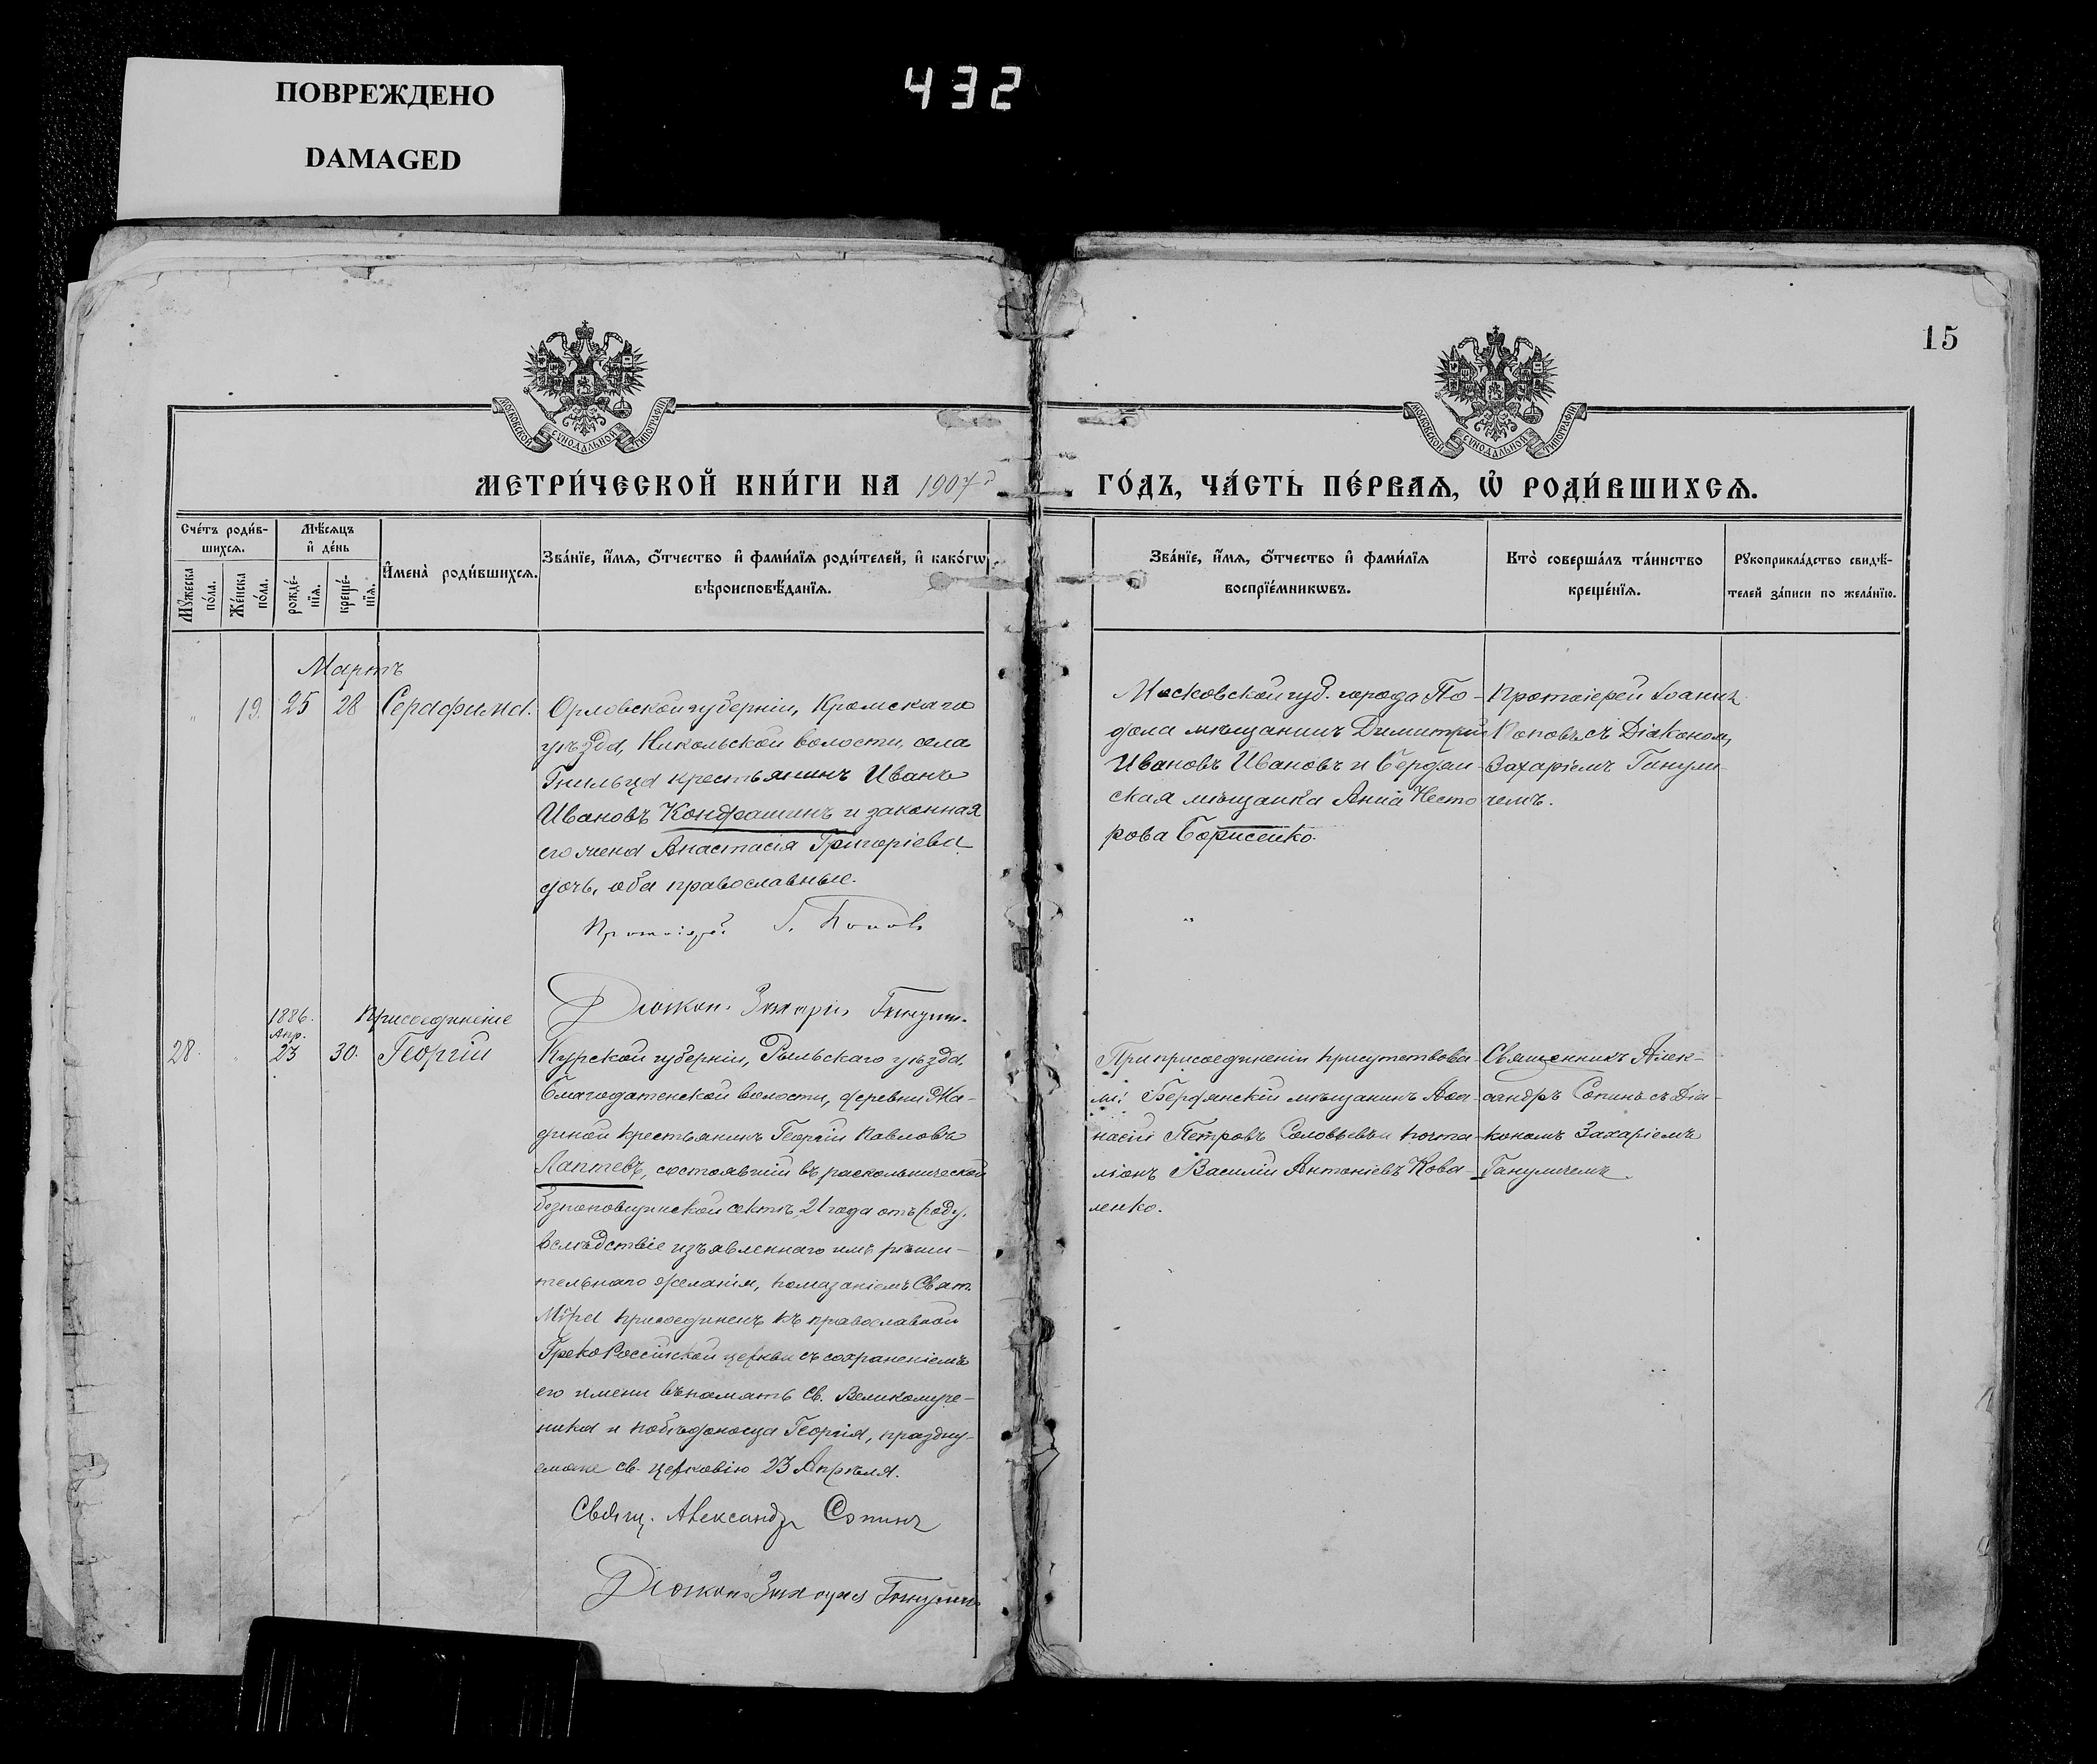 ПОВРЕЖДЕНО
DAMAGED
432
15
МОСКОВСКОЙ СѴНОДАЛЬНОЙ ТИПОГРАФІИ
МОСКОВСКОЙ СѴНОДАЛЬНОЙ ТИПОГРАФІИ
МЕТРИ́ЧЕСКОЙ КНИ́ГИ НА 1907 ГО́ДЪ, ЧА́СТЬ ПЕ́РВАѦ, Ѡ РОДИ́ВШИХСѦ.
Сче́тъ роди́в-
шихсѧ.
Мꙋжеска
по́ла.
Же́нска
по́ла.
Мѣ́сѧцъ
и҆ де́нь
рожде́-
нїѧ.
креще́-
нїѧ.
И҆мена̀ роди́вшихсѧ.
Зва́нїе, и҆́мѧ, ѻ҆́тчество и҆ фами́лїѧ роди́телей, и҆ како́гѡ
вѣроисповѣ́данїѧ.
Зва́нїе, и҆́мѧ, ѻ҆́тчество и҆ фами́лїѧ
воспрїе́мникѡвъ.
Кто̀ соверша́лъ та́инство
креще́нїѧ.
Рꙋкоприкла́дство свидѣ́-
телей за́писи по жела́нїю.
Мартъ
" 19. 25 28 Серафима.
Орловской губерніи, Кромскаго
уѣзда, Никольской волости, села
Гнильца крестьянинъ Иванъ
Ивановъ Кондрашинъ и законная
его жена Анастасія Григоріева
дочь, оба православные.
Протоіерей І. Поповъ
Діаконъ Захарія
Московской губ. города По-
дола мѣщанинъ Димитрій
Ивановъ Ивановъ и Бердян-
ская мѣщанка Анна Несто
рова Борисенко.
Протоіерей Іоаннъ
Поповъ съ Діакономъ
Захаріемъ Ганули-
чемъ.
1886.
Апр.
Присоединеніе
28. " 23 30. Георгій
Курской губерніи, Рыльскаго уѣзда,
Благодатенской волости, деревни Жа-
диной крестьянинъ Георгій Павловъ
Лаптевъ, состоявшій въ раскольнической
безпоповщинской сектѣ, 21 года отъ роду,
вслѣдствіе изъявленнаго имъ рѣши-
тельнаго желанія, помазаніемъ Свят.
Мѵра присоединенъ къ православной
Греко Россійской церкви съ сохраненіемъ
его имени въ память св. Великомуче-
ника и побѣдоносца Георгія, праздну-
емаго св. церковію 23 Апрѣля.
Свящ. Александръ Сопинъ
Діаконъ Захарія
При присоединеніи присутствова-
ли: Бердянскій мѣщанинъ Аѳа-
насій Петровъ Соловьевъ и почта-
ліонъ Василій Антоніевъ Кова-
ленко.
Священникъ Алек-
сандръ Сопинъ съ Діа-
кономъ Захаріемъ
Гануличемъ